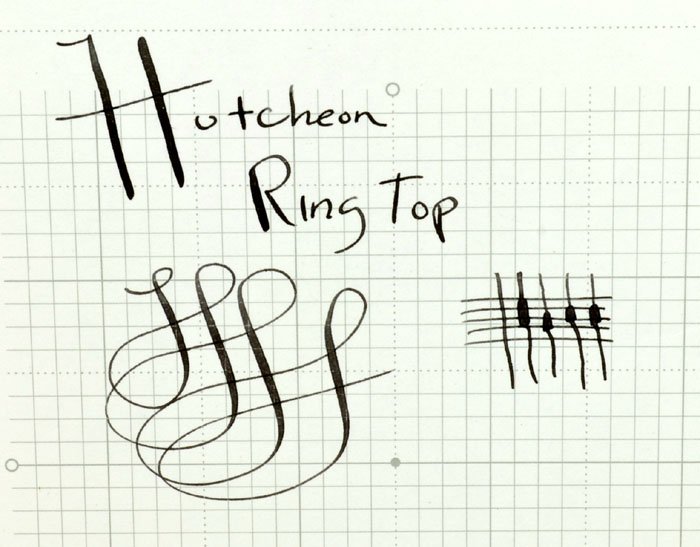 Hutcheon
Ring Top